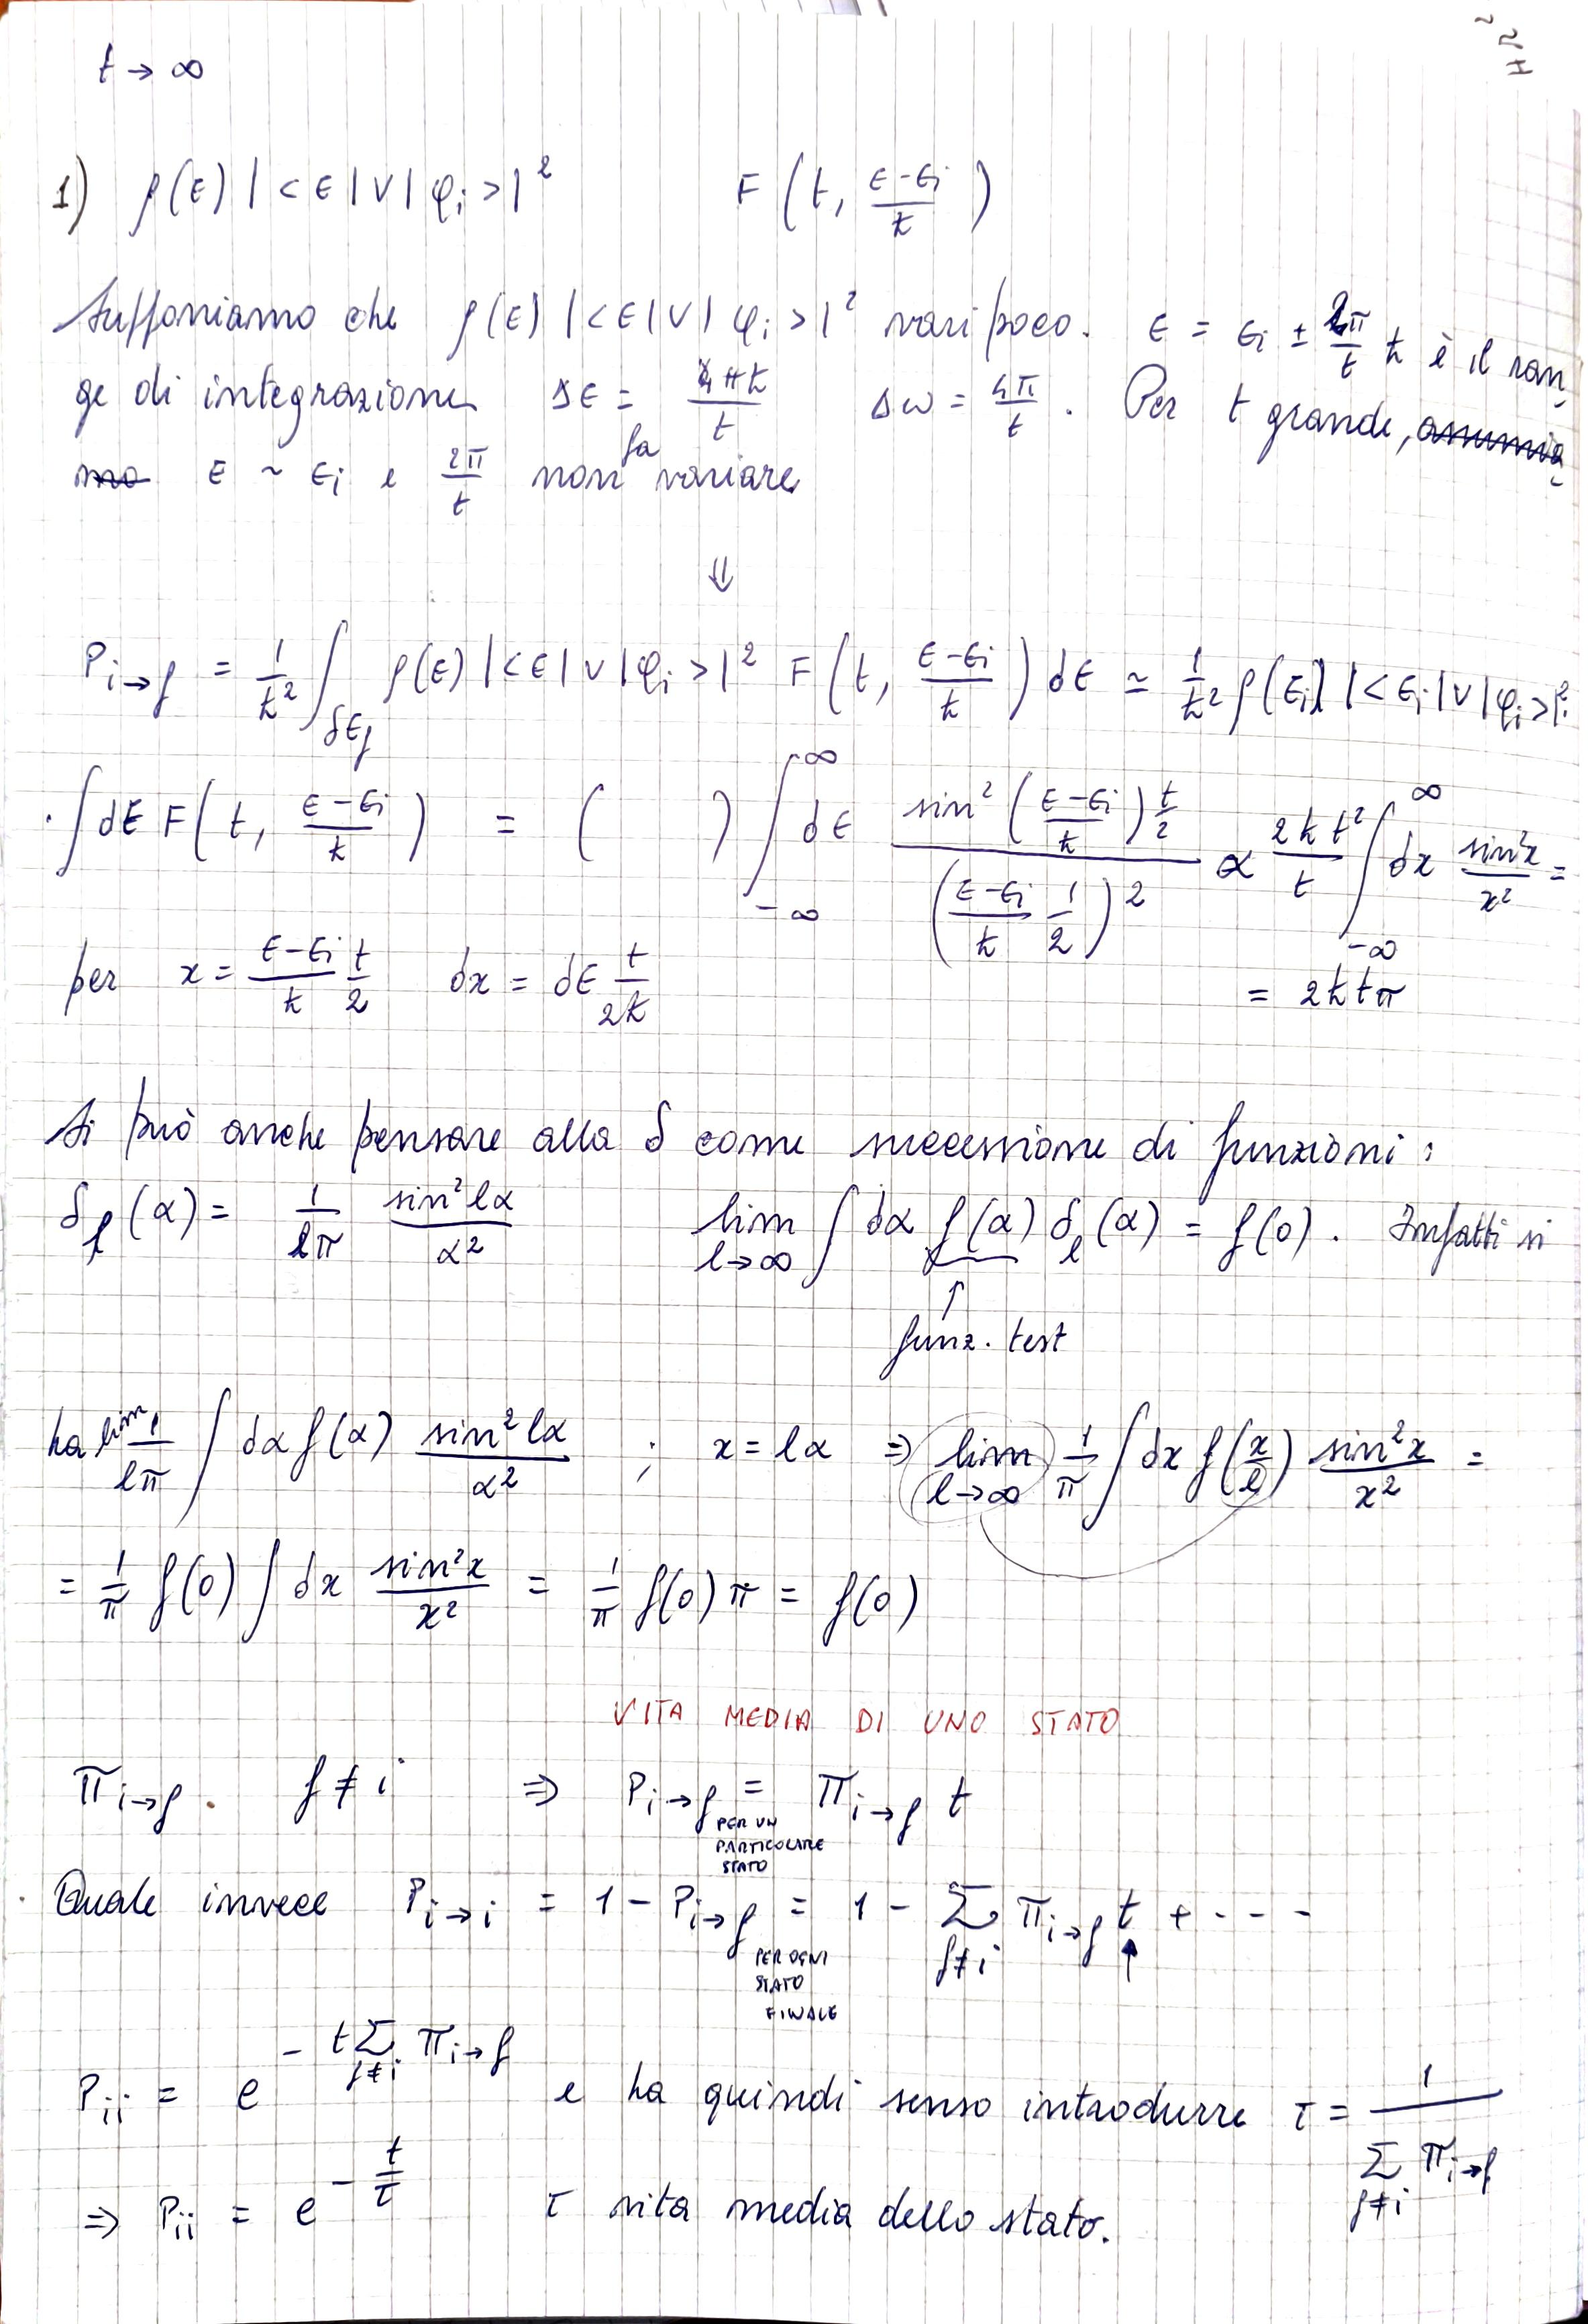 t → ∞
1) ρ(E) |<E|V|φi>|² F(t, (E-Ei)/ħ)
Supponiamo che ρ(E) |<E|V|φi>|² vari poco. E = Ei ± 2π/t ħ è il ran-
ge di integrazione ΔE = 4πħ/t Δω = 4π/t . Per t grande,
E ~ Ei e 2π/t non fa variare
⇓
Pi→f = 1/ħ² ∫δEf ρ(E) |<E|V|φi>|² F(t, (E-Ei)/ħ) dE ≃ 1/ħ² ρ(Ei) |<Ei|V|φi>|² ·
· ∫ dE F(t, (E-Ei)/ħ) = ( ) ∫_{-∞}^{∞} dE sin²((E-Ei)/ħ) t/2 / ((E-Ei)/ħ 1/2)² ∝ 2ħt²/t ∫_{-∞}^{∞} dx sin²x/x² =
per x = (E-Ei)/ħ t/2 dx = dE t/2ħ = 2ħtπ
Si può anche pensare alla δ come successione di funzioni:
δl(α) = 1/lπ sin²lα/α² lim l→∞ ∫ dα f(α) δl(α) = f(0) . Infatti si
↑
funz. test
ha lim 1/lπ ∫ dα f(α) sin²lα/α² ; x = lα ⇒ lim l→∞ 1/π ∫ dx f(x/l) sin²x/x² =
= 1/π f(0) ∫ dx sin²x/x² = 1/π f(0) π = f(0)
VITA MEDIA DI UNO STATO
Πi→f . f ≠ i ⇒ Pi→f = Πi→f t
PER UN
PARTICOLARE
STATO
. Quale invece Pi→i = 1 - Pi→f = 1 - Σ f≠i Πi→f t + - - -
PER OGNI
STATO
FINALE
Pii = e^{- t Σ f≠i Πi→f} e ha quindi senso introdurre τ = 1/Σ f≠i Πi→f
⇒ Pii = e^{-t/τ} τ vita media dello stato.